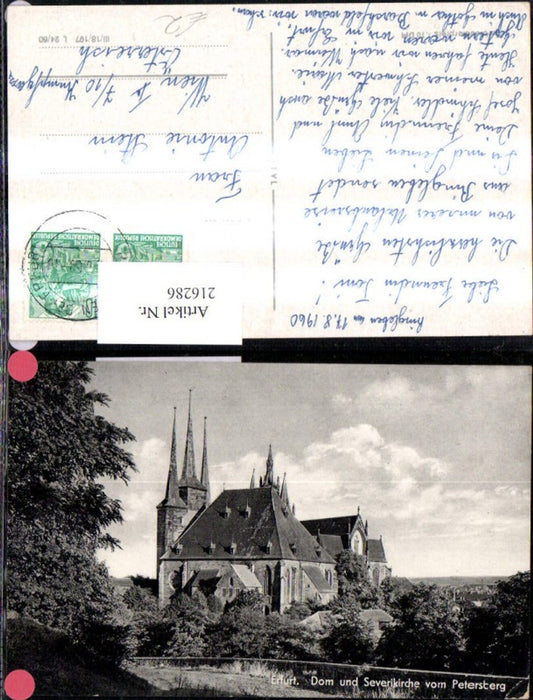 Ringleben am 17.8.1960
Liebe Freundin Toni!
Die herzlichsten Grüße
von unserer Urlaubsreise
aus Ringleben sendet
Dir und Deinen Lieben
Deine Freundin Anni und
Josef Schindler. Viele Grüße auch
von meiner Schwester Marie.
Heute fahren wir nach Weimar
waren wir in Erfurt.
Auch in Gotha u.
waren wir schon.
Frau
Antonie Stein
Wien
7/10
Österreich
£2
III/18/197 L 24/60
DEUTSCHE
DEMOKRATISCHE REPUBLIK
DEUTSCHE
DEMOKRATISCHE REPUBLIK
ERFURT
Artikel Nr.
216286
Erfurt. Dom und Severikirche vom Petersberg